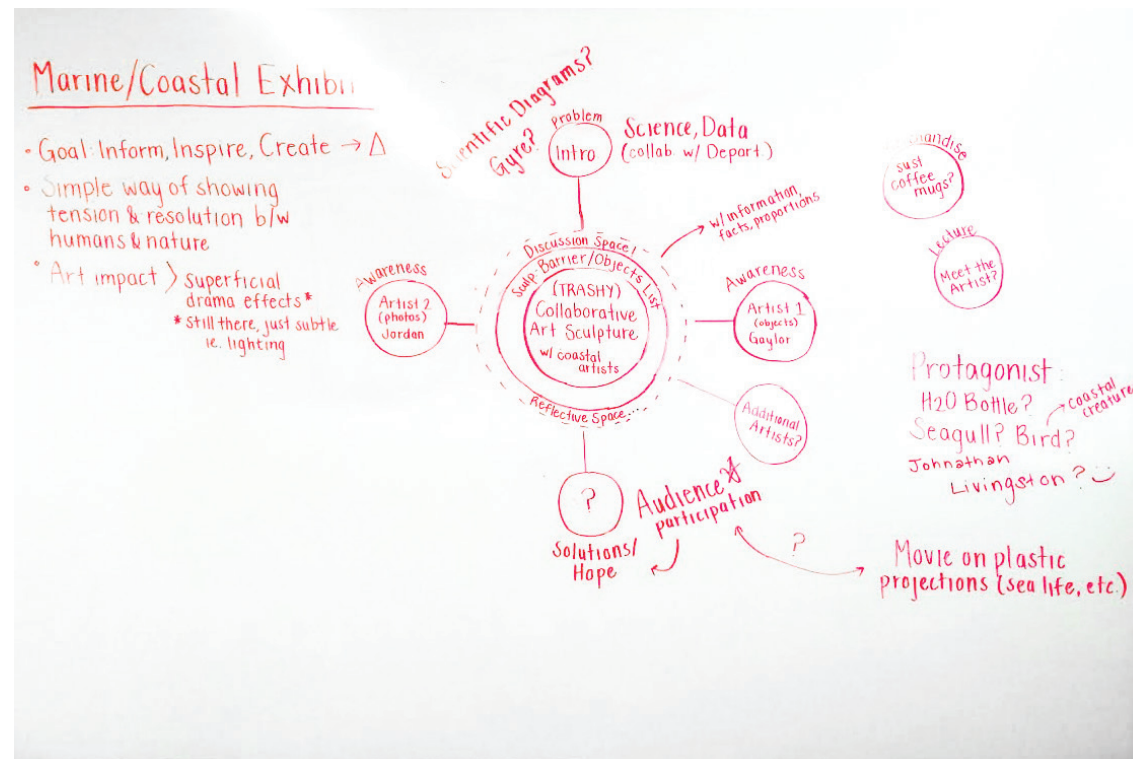 Marine/Coastal Exhibi
• Goal: Inform, Inspire, Create → Δ
• Simple way of showing
tension & resolution b/w
humans & nature
• Art impact > superficial
drama effects*
* Still there, just subtle
ie. lighting
Scientific Diagrams?
Gyre?
Problem
Intro
Science, Data
(collab. w/ Depart.)
w/ information,
facts, proportions
Discussion Space!
Sculp. Barrier/Objects List
(TRASHY)
Collaborative
Art Sculpture
w/ coastal
artists
Reflective Space...
Awareness
Artist 2
(photos)
Jordan
Awareness
Artist 1
(objects)
Gaylor
Additional
Artists?
?
Solutions/
Hope
Audience
participation
?
Movie on plastic
projections (sea life, etc.)
sust
coffee
mugs?
Lecture
Meet the
Artist?
Protagonist:
H2O Bottle?
Seagull? Bird?
coastal
creature
Johnathan
Livingston?